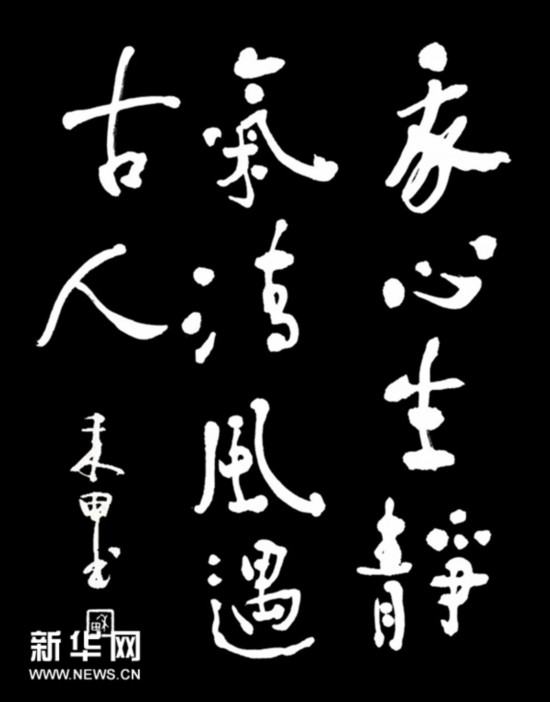 心生靜
氣清風遇
古人
田书
新华网
WWW.NEWS.CN